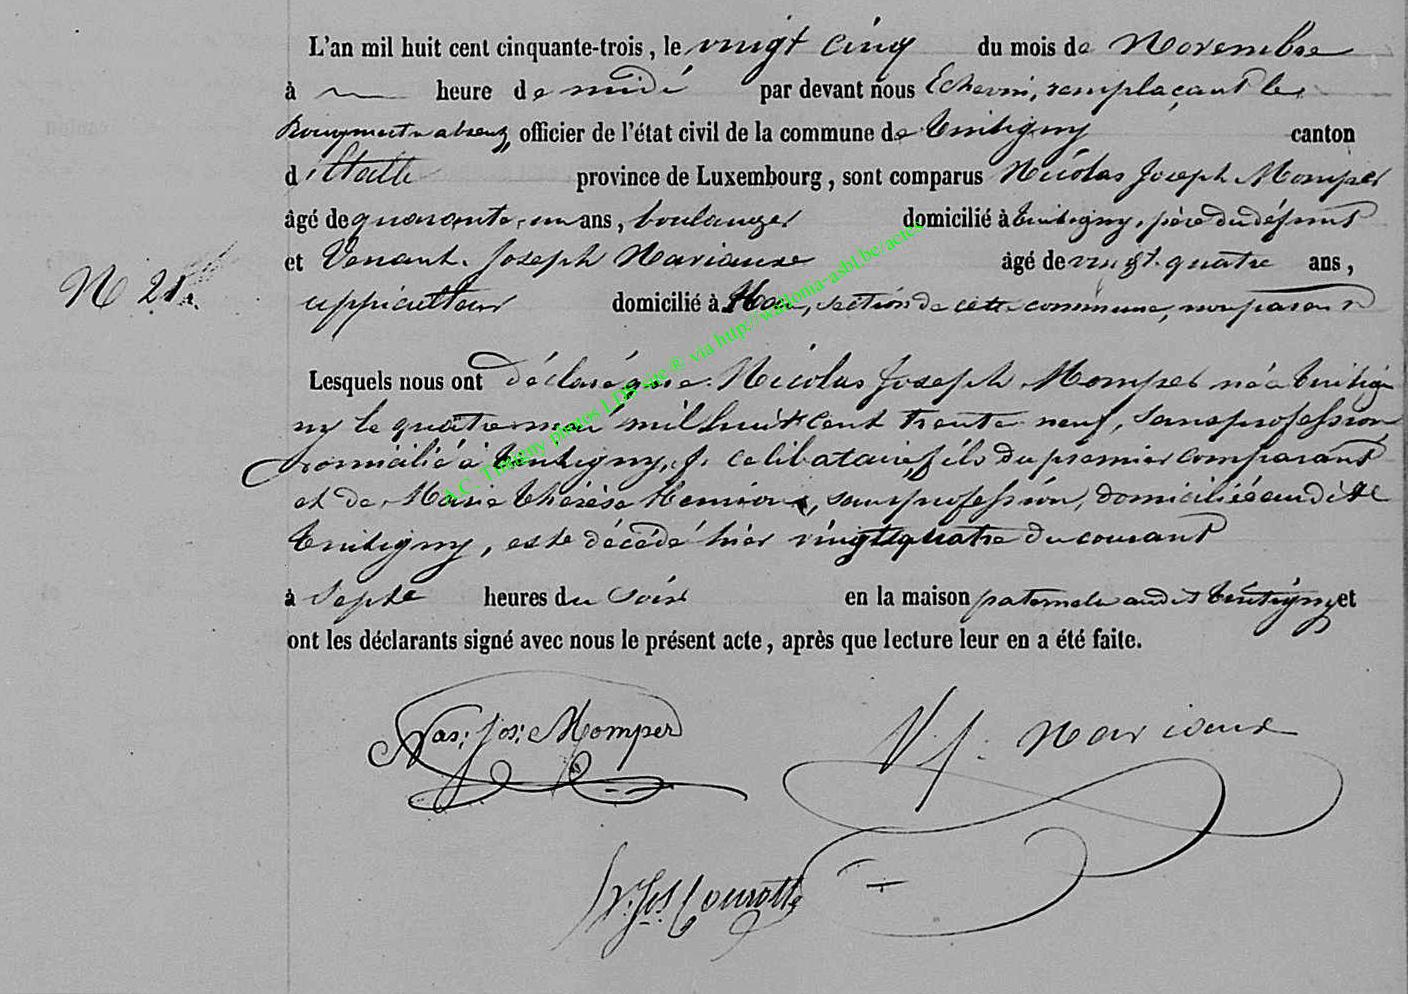 L'an mil huit cent cinquante-trois, le vingt cinq du mois de Novembre
à heure de midi par devant nous Echevin, remplaçant le
Bourgmestre absent, officier de l'état civil de la commune de Tintigny canton
d'Etalle province de Luxembourg, sont comparus Nicolas Joseph Momper
âgé de quarante-un ans, boulanger domicilié à Tintigny, père du défunt
et Venant Joseph Nariaux âgé de vingt-quatre ans,
N 21 domicilié à section de cette commune, non parent
Lesquels nous ont déclaré que Nicolas Joseph Momper né à Tintig
ny le quatre mai mil huit cent trente neuf, sans profession
domicilié à Tintigny, célibataire fils du premier comparant
et de Marie Thérèse sans profession, domiciliée au dit
Tintigny, est décédé hier vingt quatre du courant
à sept heures du soir en la maison paternelle au dit Tintigny et
ont les déclarants signé avec nous le présent acte, après que lecture leur en a été faite.
Nas: Jos: Momper V. J. Nariaux
Jos Courotte
A.C. Tintigny photos LDS site ® via http://wallonia-asbl.be/actes